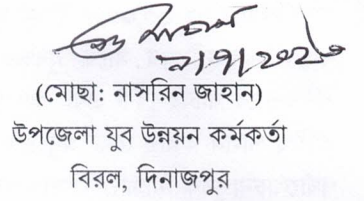 (মোছা: নাসরিন জাহান)
উপজেলা যুব উন্নয়ন কর্মকর্তা
বিরল, দিনাজপুর